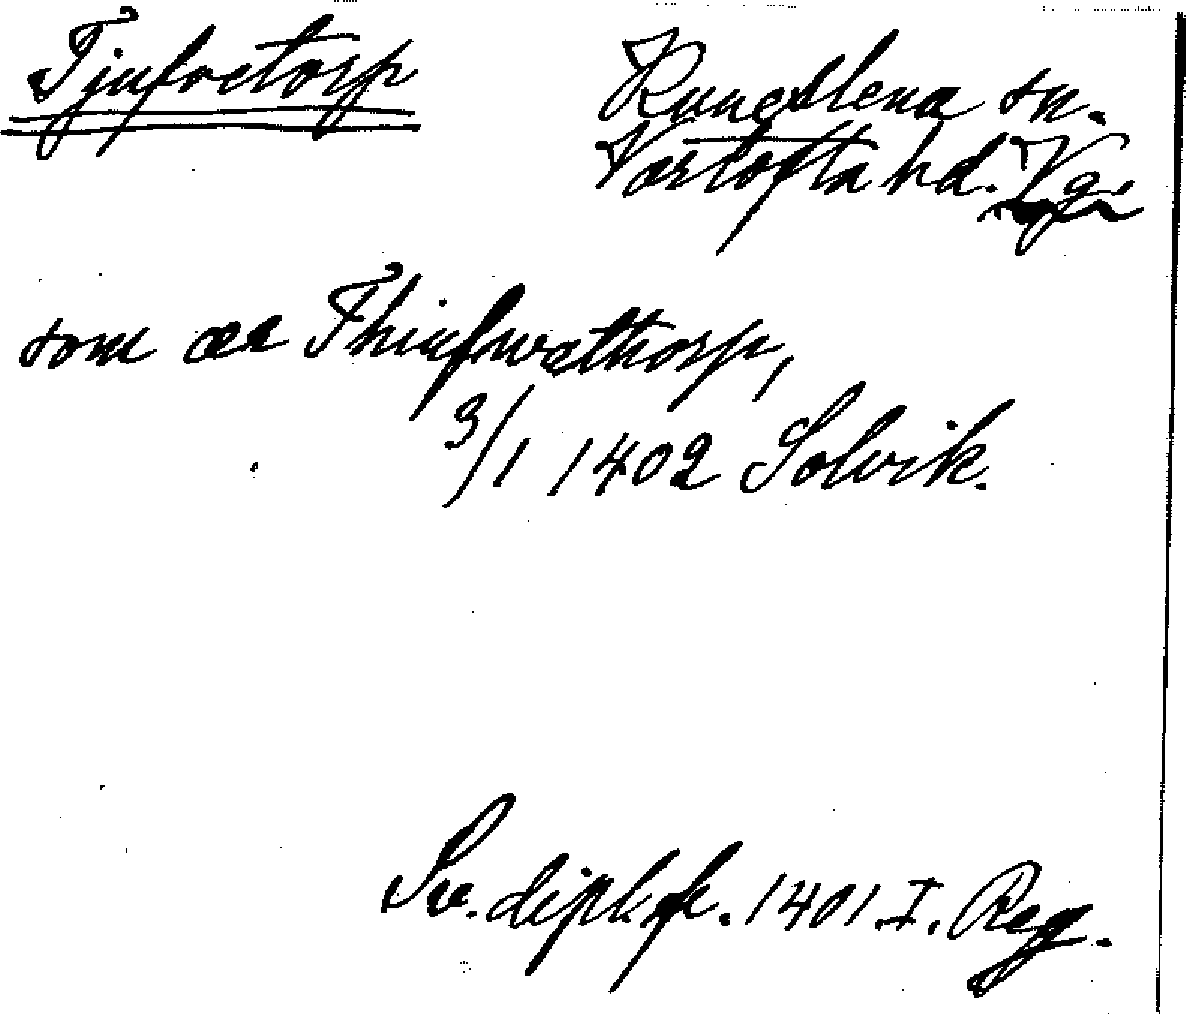 Tjufvetorp
Kungslena sn.
Vartofta hd. Vg.
som æR Thiufwæthorp,
3/1 1402 Solvik.
Sv. dipl. fr. 1401. I. Reg.